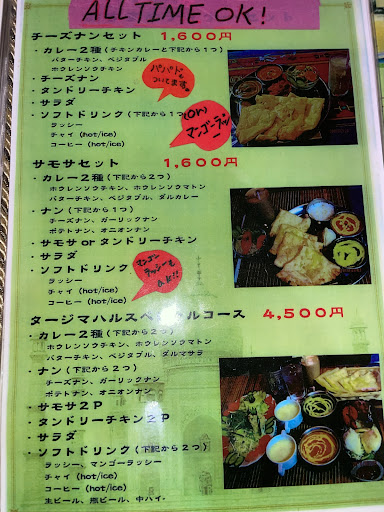 ALL TIME OK!
チーズナンセット 1,600円
・カレー2種(チキンカレーと下記から1つ)
バターチキン、ベジタブル
ホウレンソウチキン
・チーズナン
・タンドリーチキン
・サラダ
・ソフトドリンク(下記から1つ)
ラッシー
チャイ (hot/ice)
コーヒー (hot/ice)
パパドも
ついてます。
(or)
マンゴーラッシー
サモサセット 1,600円
・カレー2種(下記から2つ)
ホウレンソウチキン、ホウレンソウマトン
バターチキン、ベジタブル、ダルカレー
・ナン(下記から1つ)
チーズナン、ガーリックナン
ポテトナン、オニオンナン
・サモサ or タンドリーチキン
・サラダ
・ソフトドリンク
ラッシー
チャイ (hot/ice)
コーヒー (hot/ice)
マンゴー
ラッシーも
O.K!!
タージマハルスペシャルコース 4,500円
・カレー2種(下記から2つ)
ホウレンソウチキン、ホウレンソウマトン
バターチキン、ベジタブル、ダルマサラ
・ナン(下記から2つ)
チーズナン、ガーリックナン
ポテトナン、オニオンナン
・サモサ2P
・タンドリーチキン2P
・サラダ
・ソフトドリンク(下記から2つ)
ラッシー、マンゴーラッシー
チャイ (hot/ice)
コーヒー (hot/ice)
生ビール、瓶ビール、中ハイ